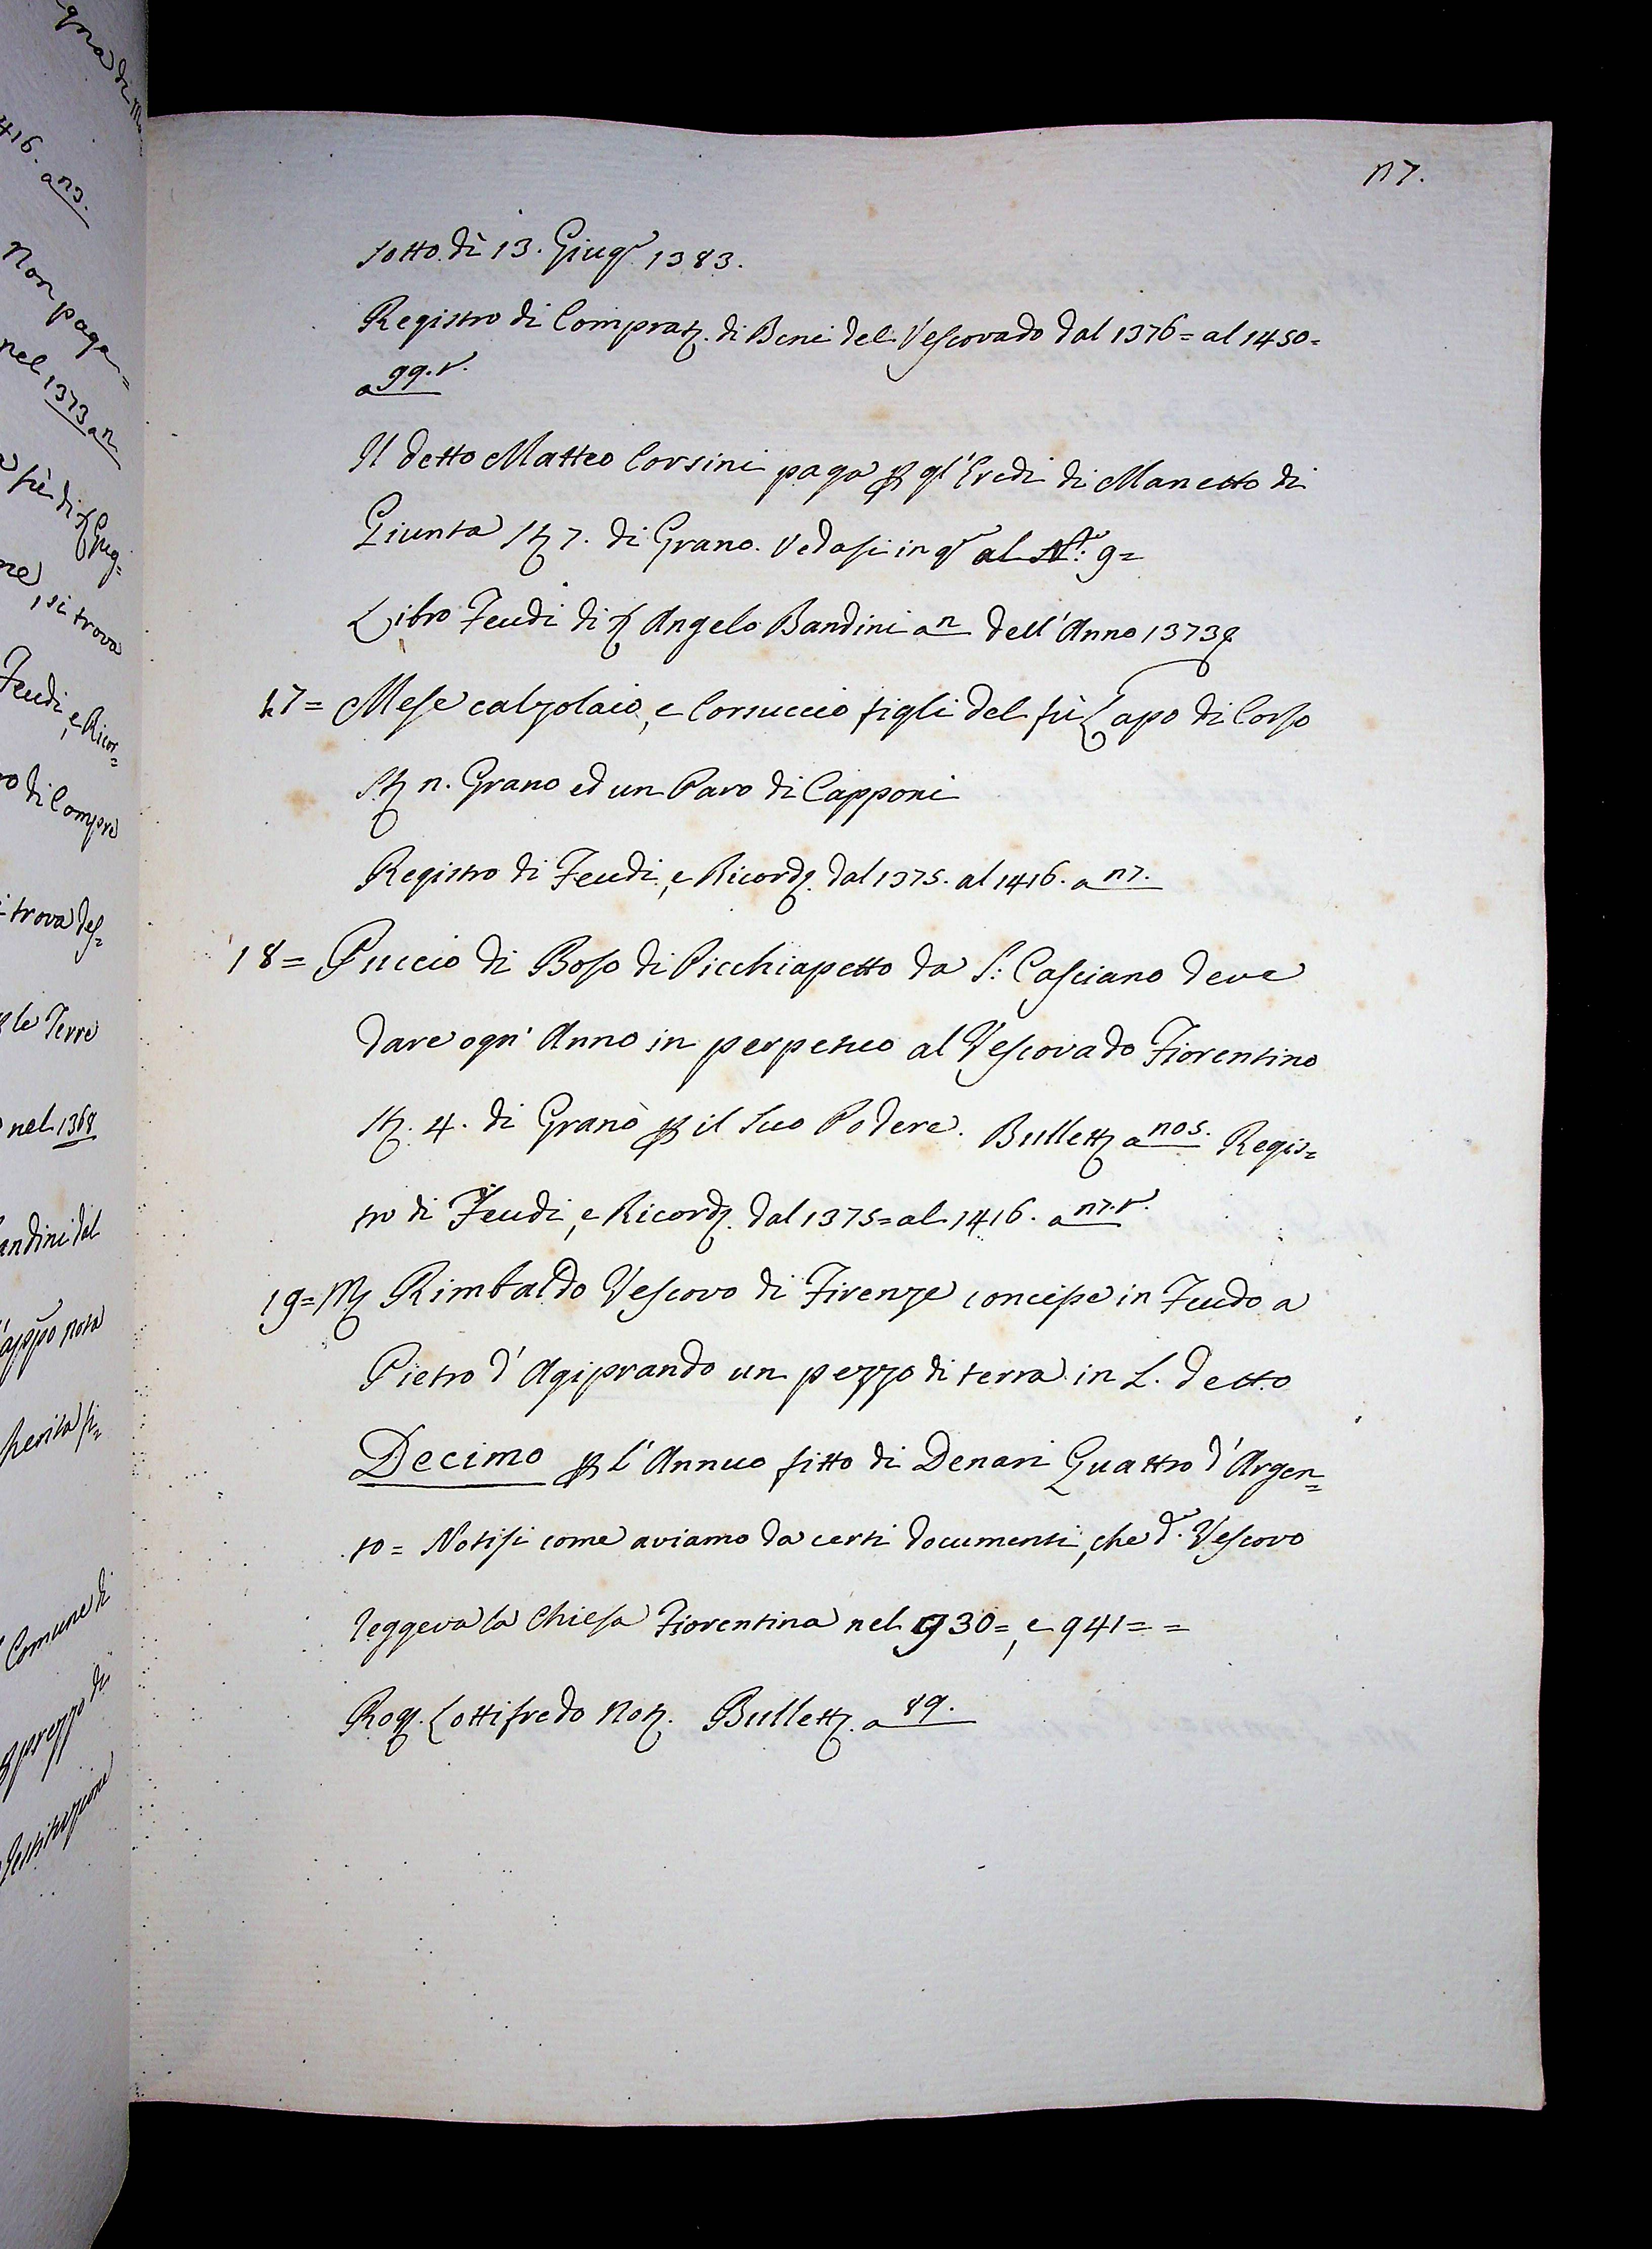 117.
sotto dì 13. Giugo 1383.
Registro di Compratz. di Beni del Vescovado dal 1376= al 1450=
a 99.v.
Il detto Matteo Corsini paga p gl'Eredi di Manetto di
Giunta St 7. di Grano. Vedasi in qo al No. 9=
Libro Feudi di Angelo Bandini a 11 dell'Anno 1373
17= Mese calzolaio, e Corsuccio figli del fù Lapo di Corso
St 11. Grano ed un Paro di Capponi
Registro di Feudi, e Ricordz. dal 1375. al 1416. a 117.
18= Puccio di Boso di Picchiapetto da S: Casciano deve
dare ogn'Anno in perpetuo al Vescovado Fiorentino
St. 4. di Grano p il suo Podere. Bullett a 105. Regis=
tro di Feudi, e Ricordz. dal 1375= al 1416. a 117.v.
19= M Rimbaldo Vescovo di Firenze concesse in Feudo a
Pietro d'Agiprando un pezzo di terra in L. detto
Decimo p l'Annuo fitto di Denari Quattro d'Argen=
to= Notisi come aviamo da certi documenti, che do. Vescovo
reggeva la Chiesa Fiorentina nel 930=, e 941==
Rog. Lottifredo Not. Bullett. a 89.
Non paga=
nel 1373 a 11
si trova
Feudi, e Ricor=
di Compre
trova des=
le Terre
nel 1368
Comune di
prezzo di